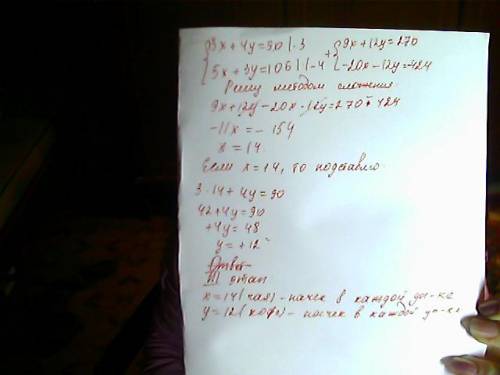 {3x + 4y = 90 | ·3 + {9x + 12y = 270
{5x + 3y = 106 | ·(-4 {-20x - 12y = -424
Решу методом сложения.
9x + 12y - 20x - 12y = 270 - 424
-11x = - 154
x = 14.
Если x = 14, то подставлю
3·14 + 4y = 90
42 + 4y = 90
+4y = 48
y = + 12
Ответ
III этап
x = 14 (чая) - пачек в каждой уп-ке
y = 12 (кофе) - пачек в каждой уп-ке